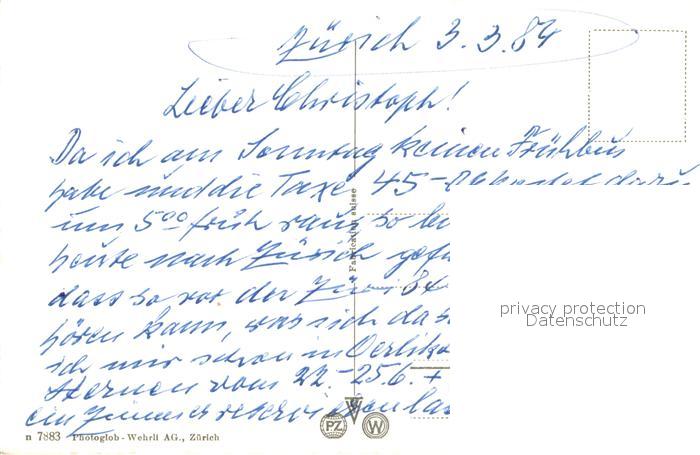 Zürich 3.3.84
Lieber Christoph!
Da ich am Sonntag keinen Frühbus
habe und die Taxe 45-
um 5⁰⁰ früh raus so
heute nach Zürich
dass so vor der
hören kann, was sich da
ich mir schon in Oerlik
Sternen vom 22.-25.6. +
ein Zimmer reservieren
Fabrication suisse
privacy protection
Datenschutz
PZ W
n 7883 Photoglob-Wehrli AG., Zürich